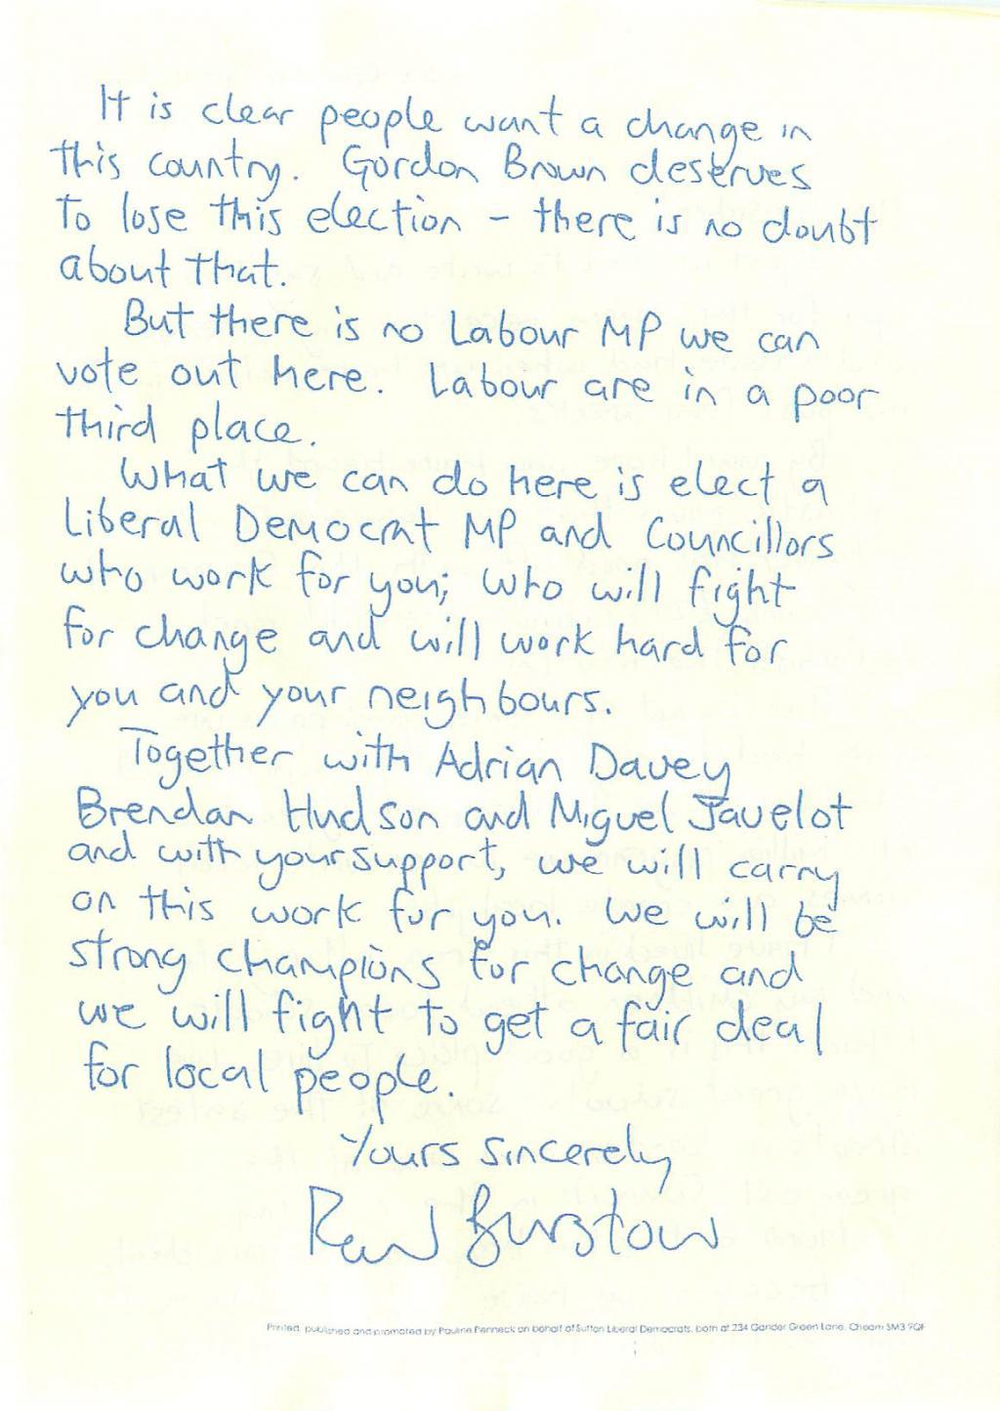 It is clear people want a change in
this country. Gordon Brown deserves
to lose this election - there is no doubt
about that.
But there is no Labour MP we can
vote out here. Labour are in a poor
third place.
What we can do here is elect a
Liberal Democrat MP and Councillors
who work for you; who will fight
for change and will work hard for
you and your neighbours.
Together with Adrian Davey
Brendan Hudson and Miguel Javelot
and with your support, we will carry
on this work for you. We will be
strong champions for change and
we will fight to get a fair deal
for local people.
Yours sincerely
Paul Burstow
Printed, published and promoted by Pauline Penneck on behalf of Sutton Liberal Democrats, both at 234 Gander Green Lane, Cheam SM3 9QF